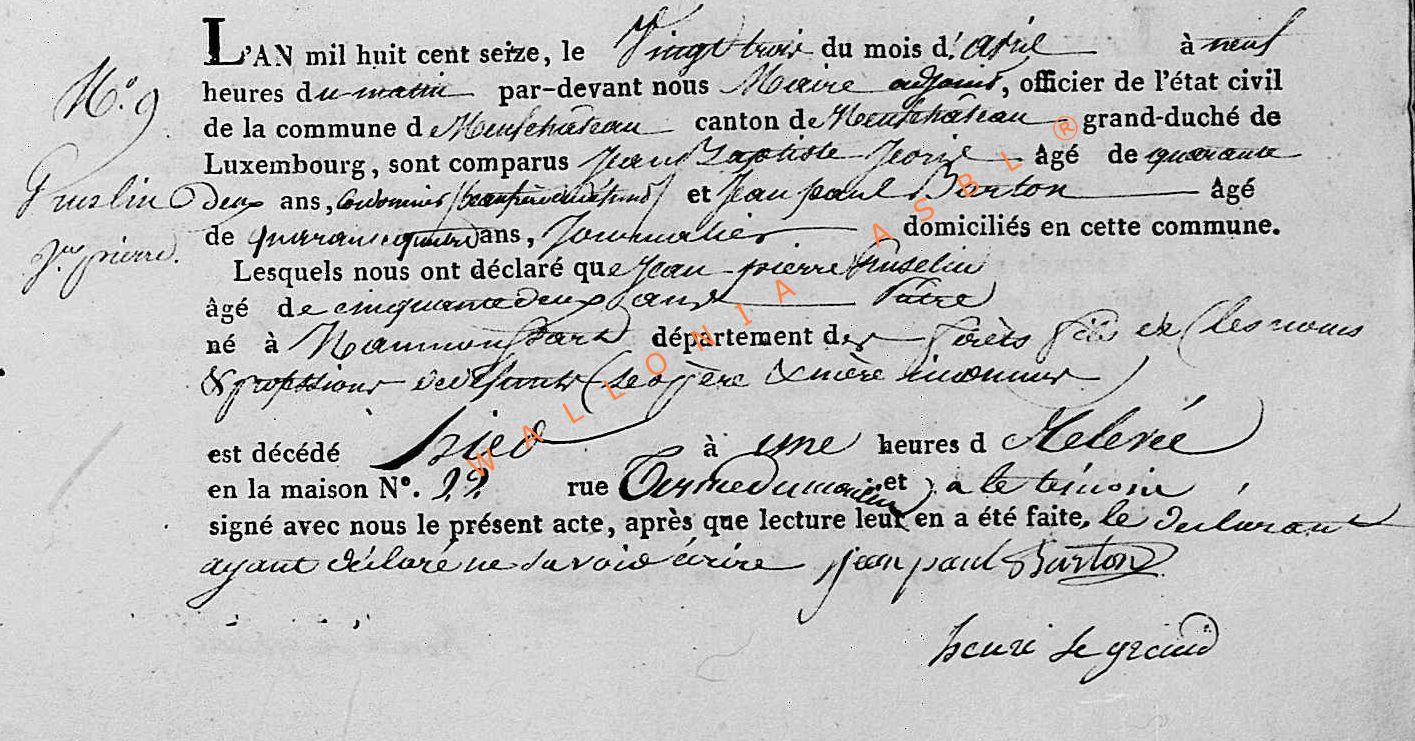 N.º 9
Gruslin
Jn pierre.
L'AN mil huit cent seize, le Vingt trois du mois d'avril à neuf
heures du matin par-devant nous Maire adjoint, officier de l'état civil
de la commune de Neufchâteau canton de Neufchâteau grand-duché de
Luxembourg, sont comparus Jean Baptiste âgé de quarante
deux ans, Cordonnier (beaufrère du défunt) et Jean paul Barton âgé
de quarante quatre ans, Journalier domiciliés en cette commune.
Lesquels nous ont déclaré que Jean-pierre Gruselin
âgé de cinquante deux ans Pâtre
né à département des forêts fils de (les noms
& professions de ses père & mère inconnus)
est décédé hier à une heures de Relevée
en la maison N°. 22 rue et a le témoin
signé avec nous le présent acte, après que lecture leur en a été faite, le déclarant
ayant déclaré ne savoir écrire Jean paul Barton
henri le grand
WALLONIA ASBL ®